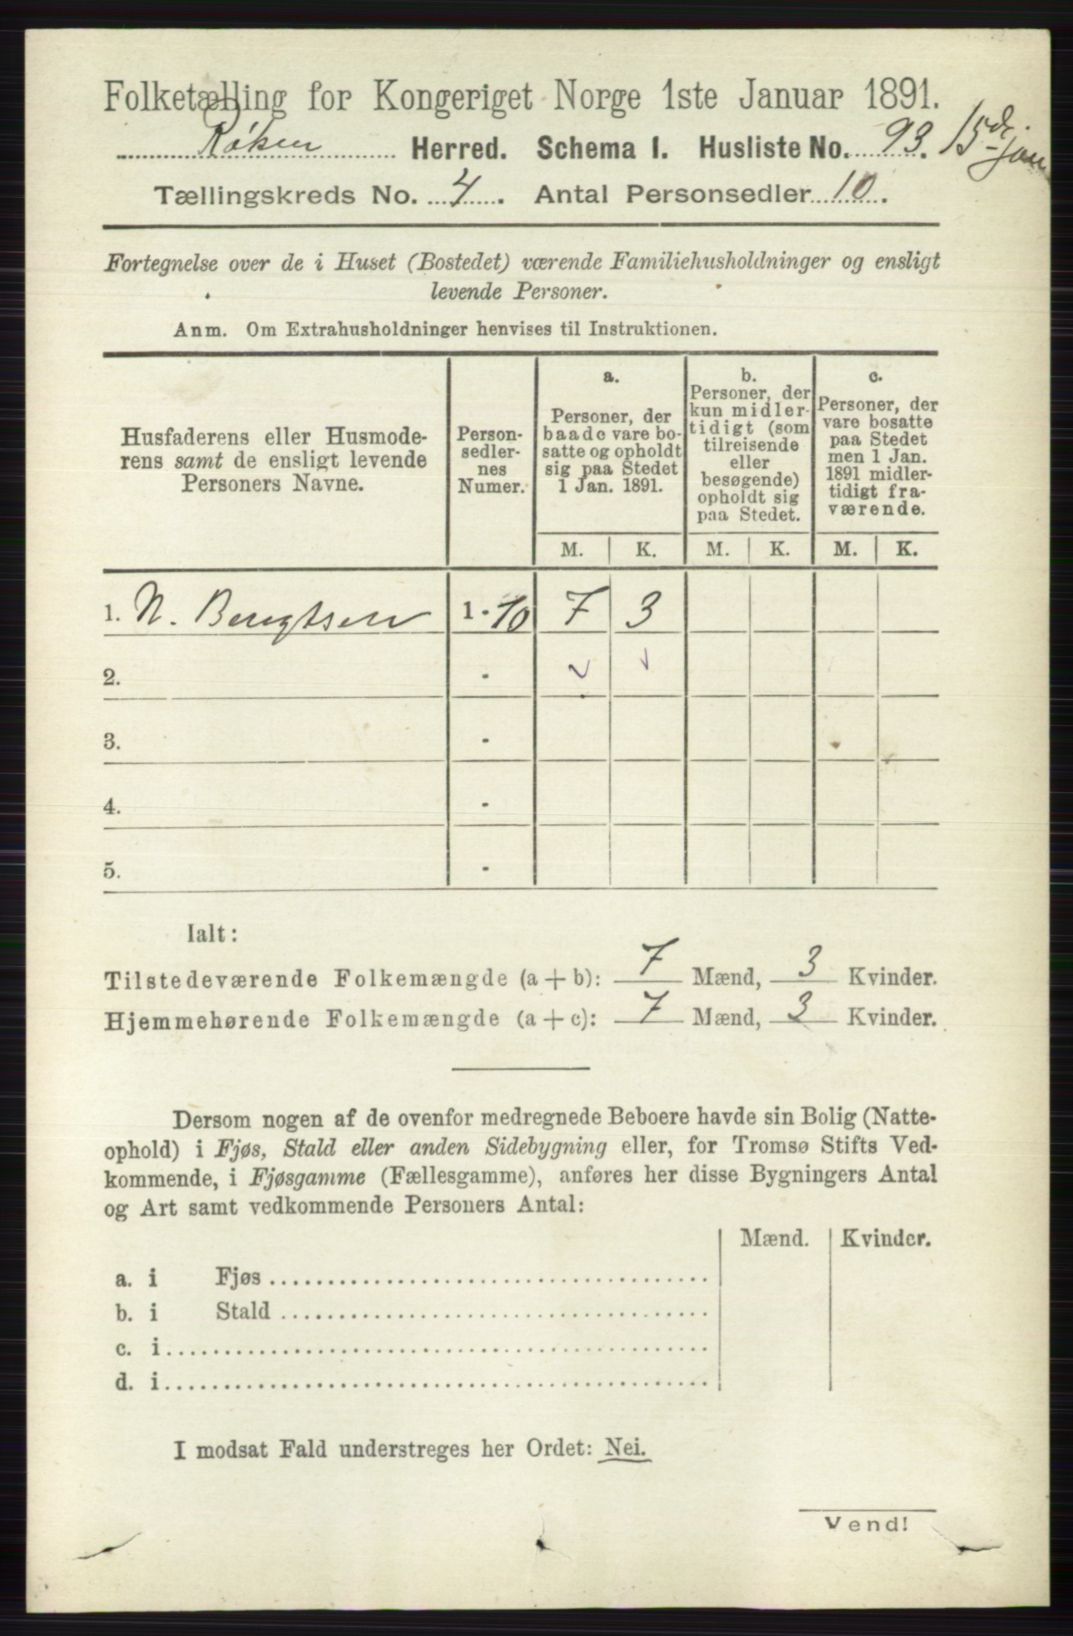 Folketælling for Kongeriget Norge 1ste Januar 1891.
Røken Herred. Schema I. Husliste No. 93. 15de jan
Tællingskreds No. 4. Antal Personsedler 10.
Fortegnelse over de i Huset (Bostedet) værende Familiehusholdninger og ensligt
levende Personer.
Anm. Om Extrahusholdninger henvises til Instruktionen.
Husfaderens eller Husmode-
rens samt de ensligt levende
Personers Navne.
Person-
sedler-
nes
Numer.
a.
Personer, der
baade vare bo-
satte og opholdt
sig paa Stedet
1 Jan. 1891.
b.
Personer, der
kun midler-
tidigt (som
tilreisende
eller
besøgende)
opholdt sig
paa Stedet.
c.
Personer, der
vare bosatte
paa Stedet
men 1 Jan.
1891 midler-
tidigt fra-
værende.
M. K. M. K. M. K.
1. N. Bengtsen 1 - 10 7 3
2. -
3. -
4. -
5. -
Ialt:
Tilstedeværende Folkemængde (a + b): 7 Mænd, 3 Kvinder.
Hjemmehørende Folkemængde (a + c): 7 Mænd, 3 Kvinder.
Dersom nogen af de ovenfor medregnede Beboere havde sin Bolig (Natte-
ophold) i Fjøs, Stald eller anden Sidebygning eller, for Tromsø Stifts Ved-
kommende, i Fjøsgamme (Fællesgamme), anføres her disse Bygningers Antal
og Art samt vedkommende Personers Antal:
Mænd. Kvinder.
a. i Fjøs
b. i Stald
c. i
d. i
I modsat Fald understreges her Ordet: Nei.
Vend!